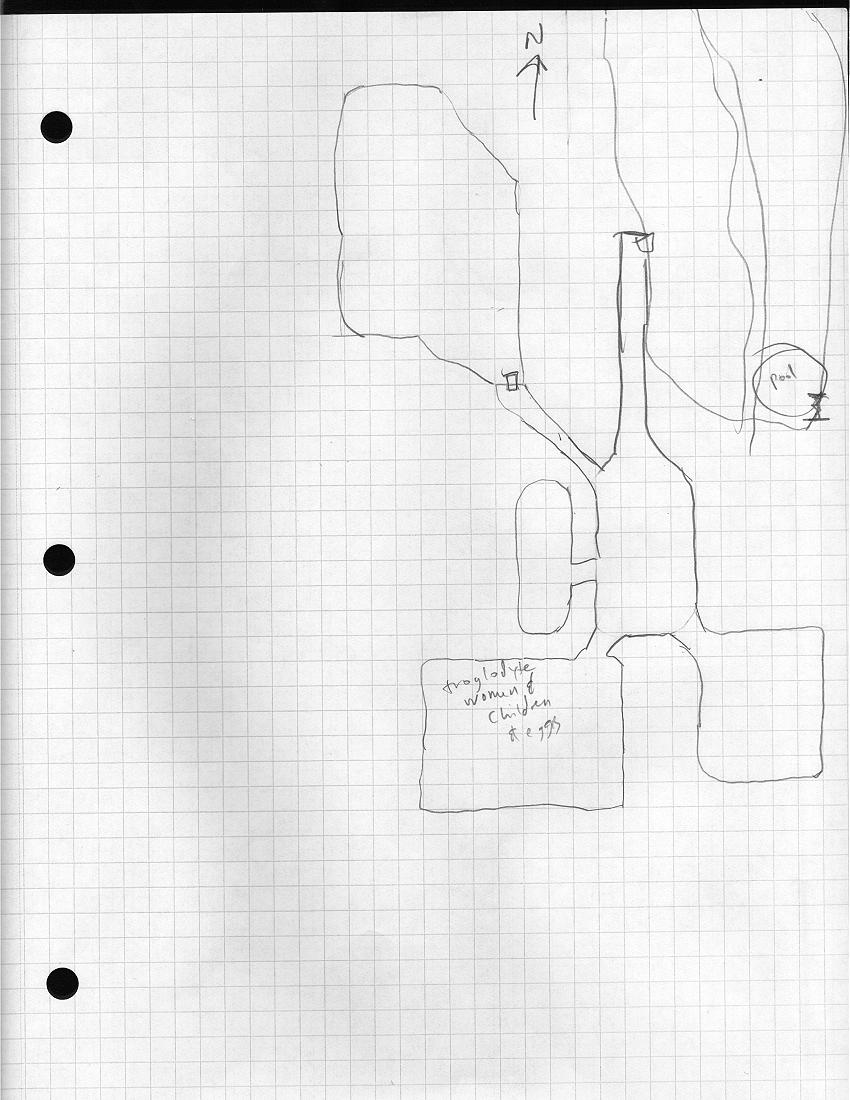 N
pool
troglodyte
women &
children
& eggs